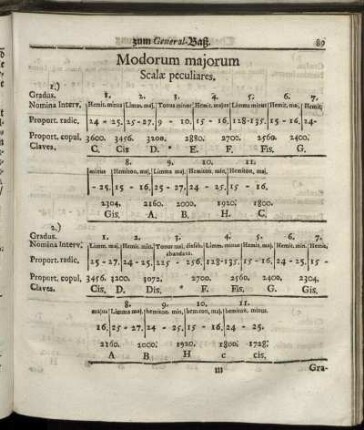 zum General-Baß. 89
Modorum majorum
Scalæ peculiares.
1.)
Gradus. 1. 2. 3. 4. 5. 6. 7.
Nomina Interv. Hemit. minus Limma maj. Tonus minus Hemit. major Limma minus Hemit. maj. Hemit.
Proport. radic. 24 - 25. 25 - 27. 9 - 10. 15 - 16. 128-135. 15 - 16. 24-
Proport. copul. 3600. 3456. 3200. 2880. 2700. 2560. 2400.
Claves. C. Cis D. * E. F. Fis. G.
8. 9. 10. 11.
minus Hemiton. maj. Limma maj. Hemiton. min. Hemiton. maj.
- 25. 15 - 16. 25 - 27. 24 - 25. 15 - 16.
2304. 2160. 2000. 1920. 1800.
Gis. A. B. H. C.
2.)
Gradus. 1. 2. 3. 4. 5. 6. 7.
Nomina Interv. Limm. maj. Hemit. min. Tonus maj. Hemit. maj. Limm. minus Hemit. maj. Hemit. min. Hemit.
Proport. radic. 25 - 27. 24 - 25. 225 - 256. 128-135. 15 - 16. 24 - 25. 15 -
Proport. copul. 3456. 3200. 3072. 2700. 2560. 2400. 2304.
Claves. Cis. D. Dis. * F. Fis. G. Gis.
8. 9. 10. 11.
major Limma maj. hemiton. min. hemiton. maj. hemiton. minus
16. 25 - 27. 24 - 25. 15 - 16. 24 - 25.
2160. 2000. 1920. 1800. 1728.
A B H c cis.
m Gra-